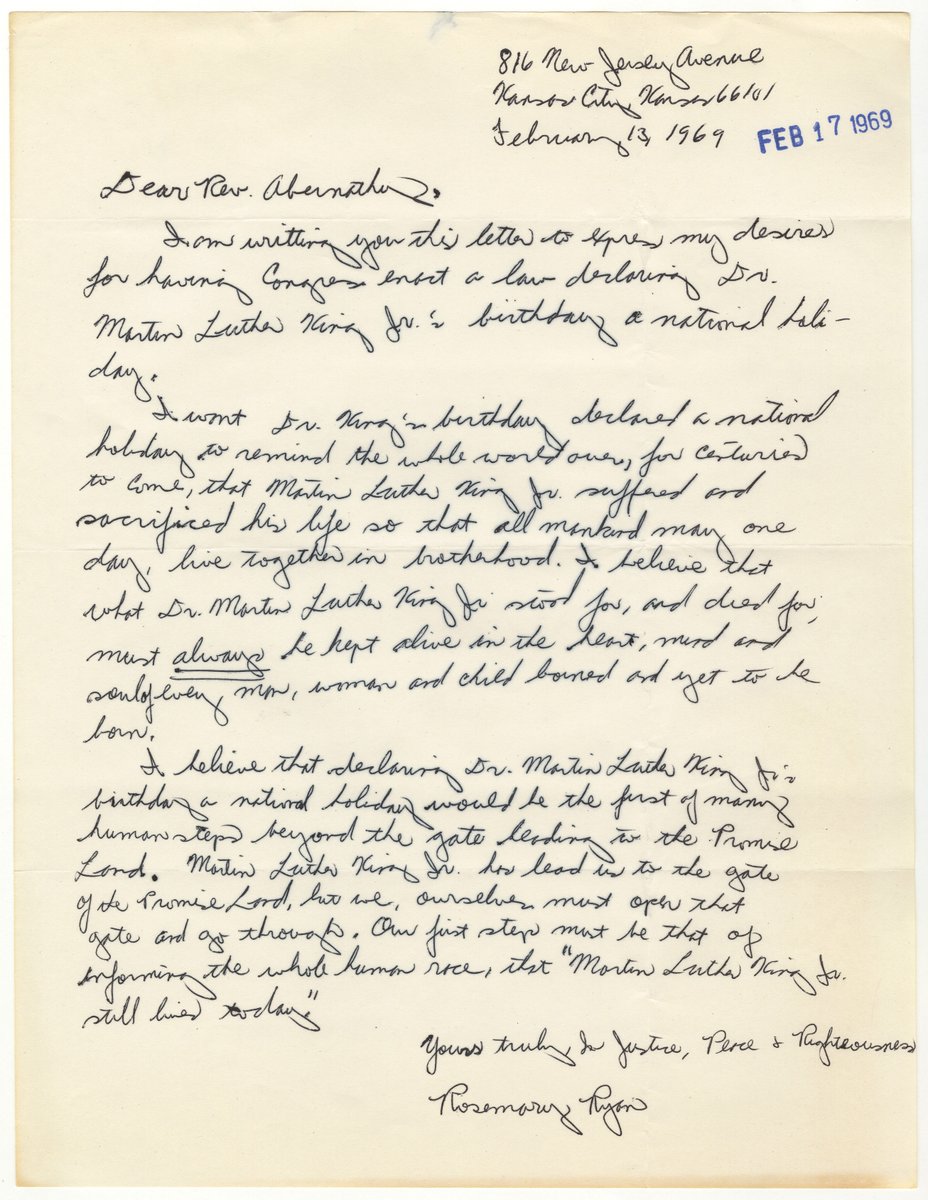 816 New Jersey Avenue
Kansas City, Kansas 66101
February, 13, 1969
FEB 17 1969
Dear Rev. Abernathy,
I am writting you this letter to expres my desires
for having Congress enact a law declaring Dr.
Martin Luther King Jr.'s birthday a national holi-
day.
I want Dr. King's birthday declared a national
holiday to remind the whole world over, for centuries
to come, that Martin Luther King Jr. suffered and
sacrificed his life so that all mankind may one
day, live together in brotherhood. I believe that
what Dr. Martin Luther King Jr stood for, and died for,
must always be kept alive in the heart, mind and
soul of every, man, woman and child borned and yet to be
born.
I believe that declaring Dr. Martin Luther King Jr's
birthday a national holiday would be the first of many
human steps beyond the gate leading to the Promise
Land. Martin Luther King Jr. has lead us to the gate
of the Promise Land, but we, ourselves must open that
gate and go through. Our first step must be that of
informing the whole human race, that "Martin Luther King Jr.
still lives today."
Yours truly, In Justice, Peace & Righteousness
Rosemary Ryan